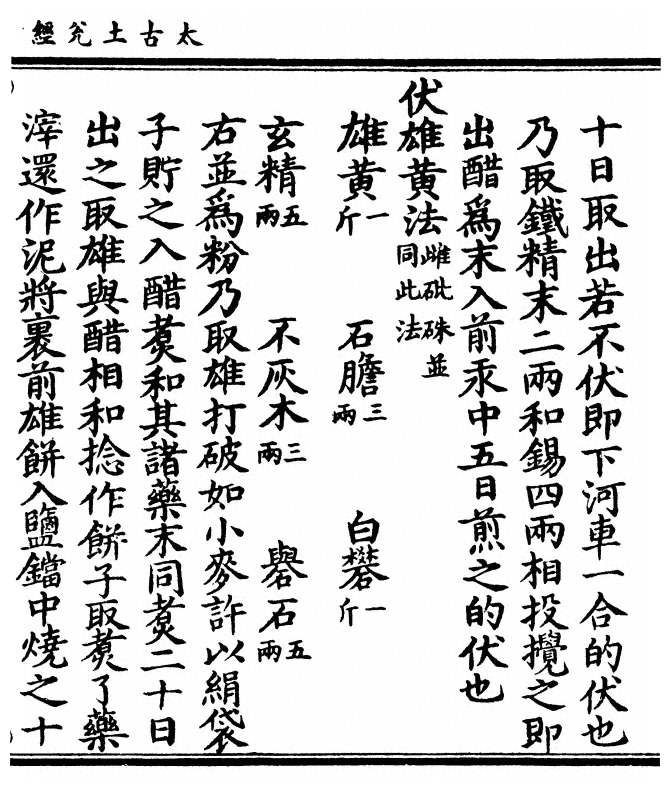 太古土兊經
十日取出若不伏即下河車一合的伏也
乃取鐵精末二兩和錫四兩相投攪之即
出醋爲末入前汞中五日煎之的伏也
伏雄黄法雌砒硃並同此法
雄黄一斤 石膽三兩 白礬一斤
玄精五兩 不灰木三兩 礜石五兩
右並爲粉乃取雄打破如小麥許以絹袋
子貯之入醋煑和其諸藥末同煑二十日
出之取雄與醋相和捻作餅子取煑了藥
滓還作泥將裹前雄餅入鹽鐺中燒之十